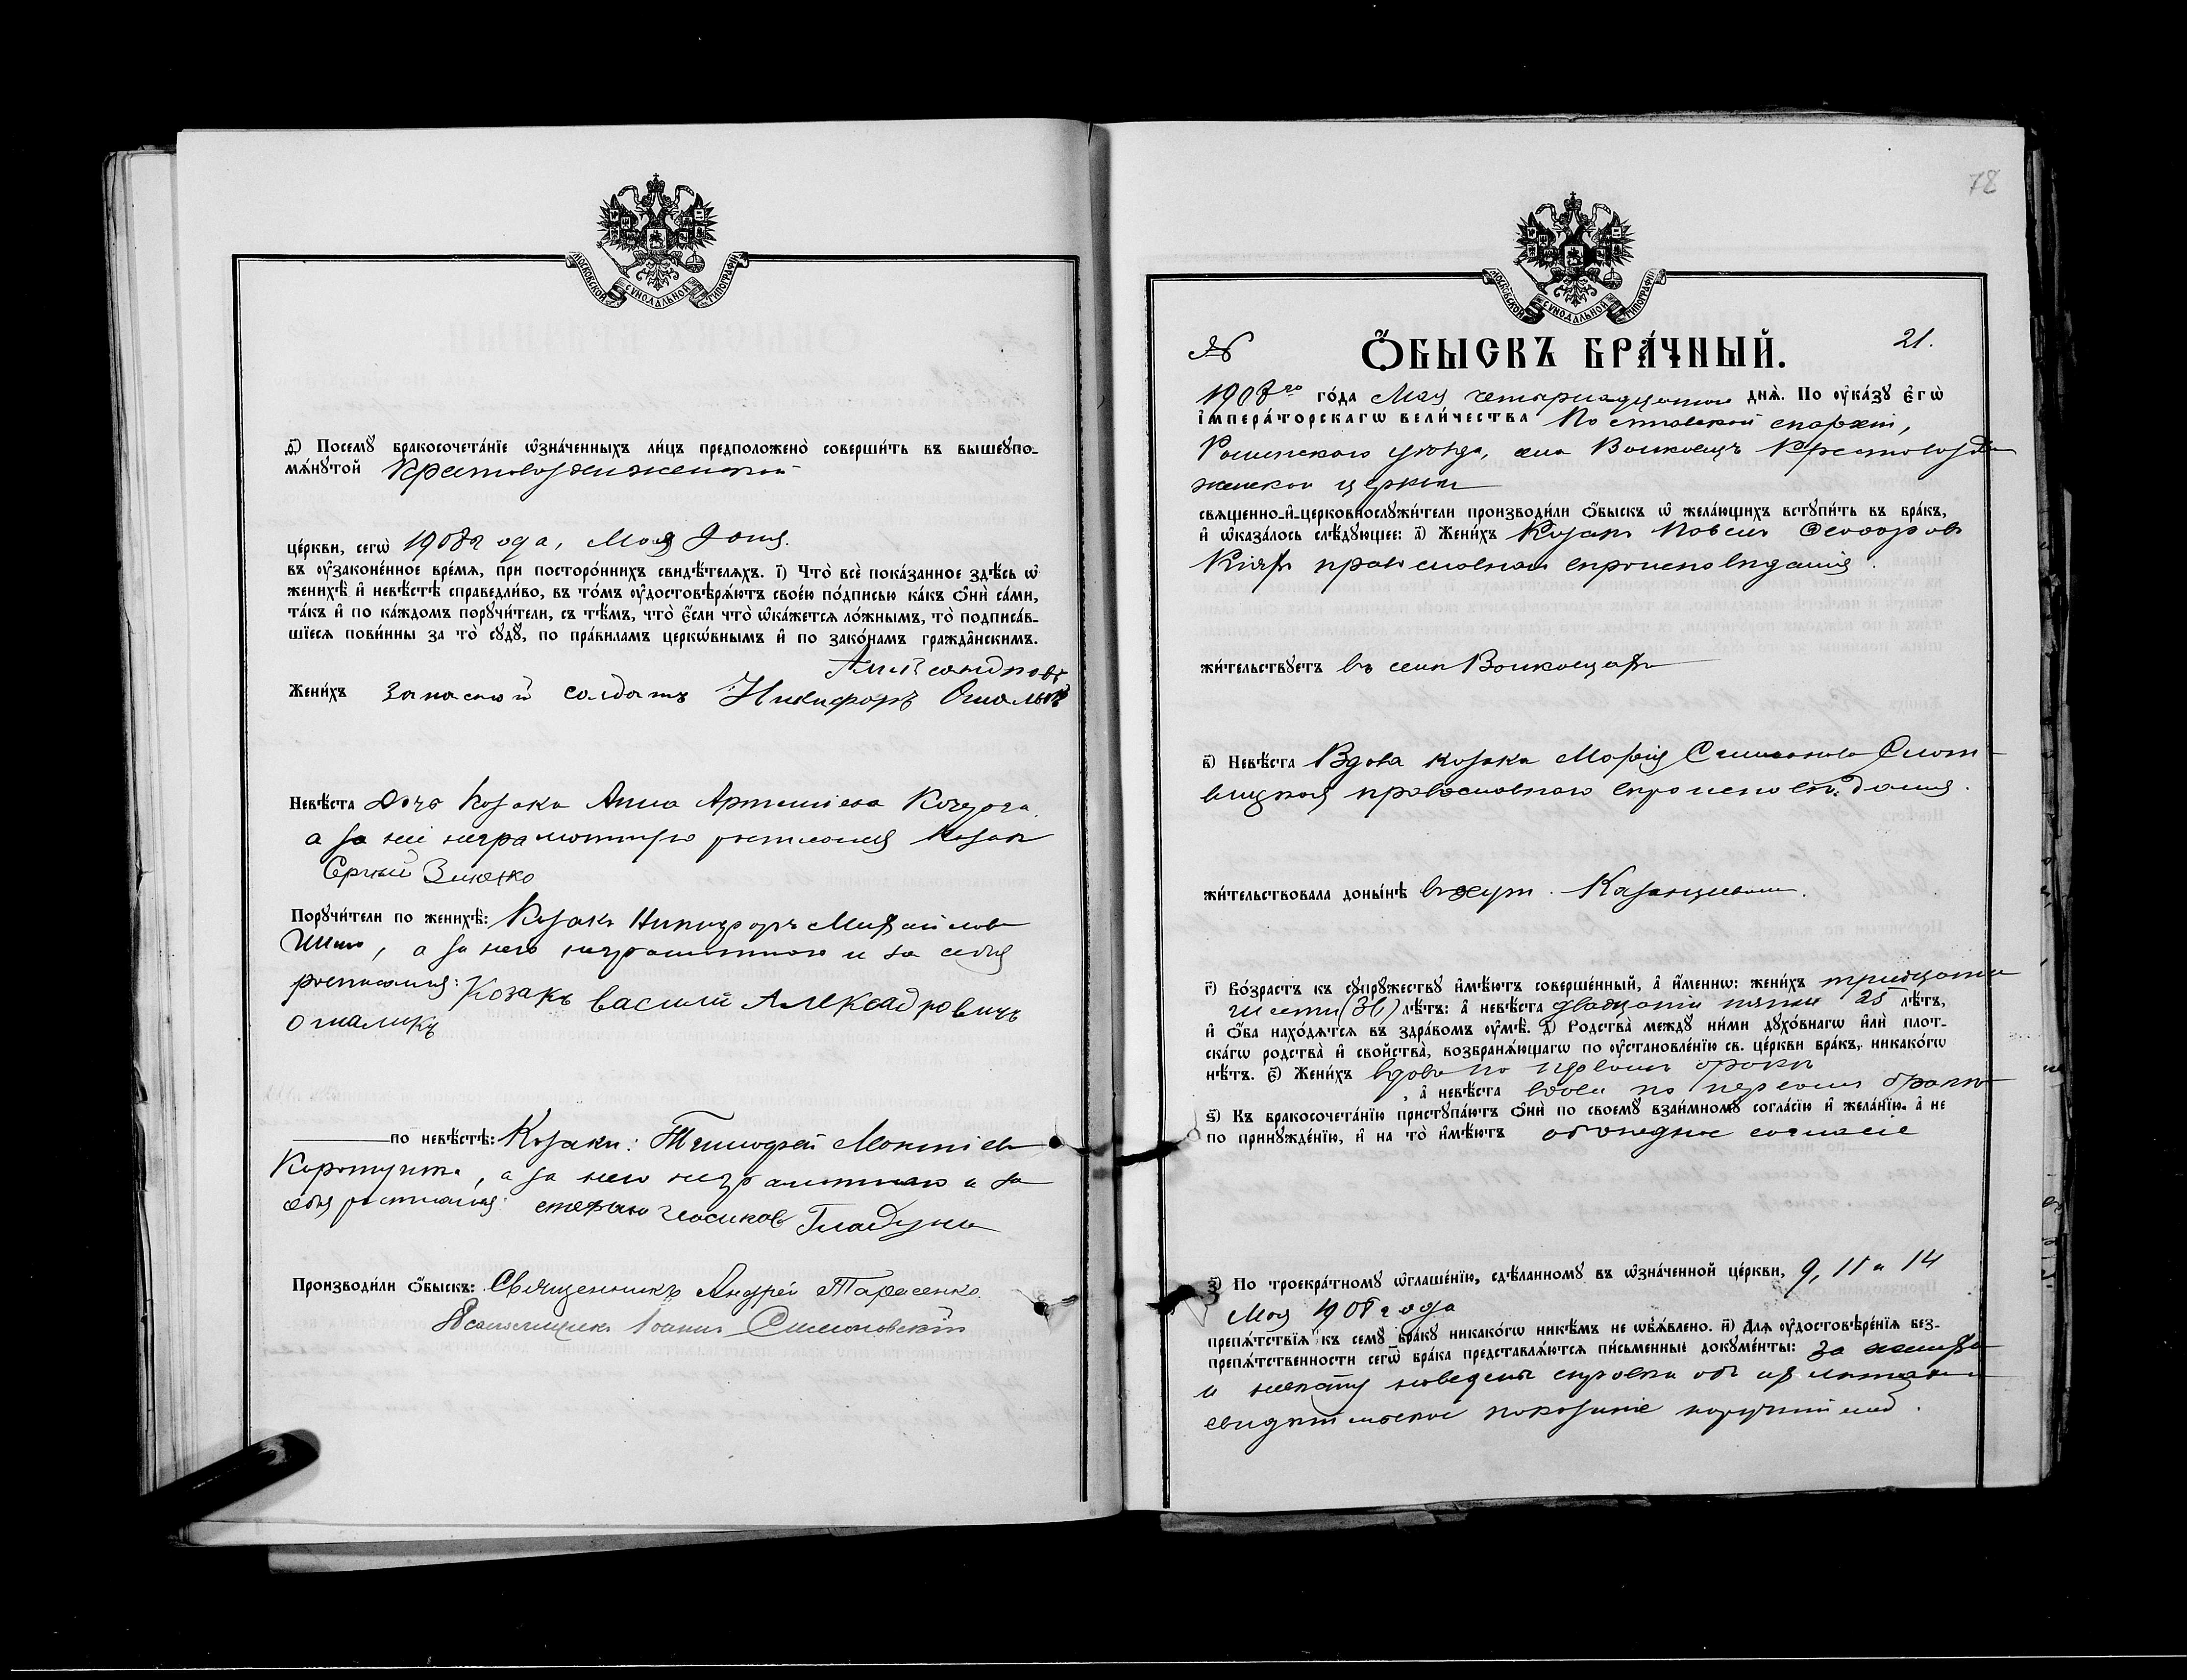 МОСКОВСКОЙ СѴНОДАЛЬНОЙ ТИПОГРАФІИ
д҃) Посемꙋ̀ бракосочета́нїе ѡ҆зна́ченныхъ ли́цъ предположено̀ соверши́ть въ вышеꙋпо-
мѧ́нꙋтой Крестовоздвиженской
це́ркви, сегѡ̀ 1908 года, Мая 9 дня.
въ ᲂу҆зако́ненное вре́мѧ, при посторо́ннихъ свидѣ́телѧхъ. і҃) Что̀ всѐ пока́занное здѣ́сь ѡ҆
женихѣ̀ и҆ невѣ́стѣ справедли́во, въ то́мъ ᲂу҆достовѣрѧ́ютъ свое́ю по́дписью ка́къ ѻ҆нѝ са́ми,
та́къ и҆ по ка́ждомъ порꙋчи́тели, съ тѣ́мъ, что̀ є҆́сли что̀ ѡ҆ка́жетсѧ ло́жнымъ, то̀ подписа́в-
шїесѧ пови́нны за то̀ сꙋдꙋ̀, по пра́виламъ церкѡ́внымъ и҆ по зако́намъ гражда̑нскимъ.
Александровъ
Жени́хъ Запасной солдатъ Никифоръ
Невѣ́ста Дочь козака Анна Артеміева
а за неё неграмотную росписался козак
Сергий Зиненко
Порꙋчи́тели по женихѣ̀: Козакъ Никифоръ Михайловъ
, а за него неграмотнаго и за себя
росписался: Козакъ василий Алексадровичъ
огиаликъ
по невѣ́стѣ: Козаки: Тимофей
, а за него неграмотнаго и за
себя росписался: Гладунъ
Производи́ли ѻ҆́быскъ: Священникъ Андрей Тарасенко.
Псаломщикъ Іоаннъ Симоновскій
78
МОСКОВСКОЙ СѴНОДАЛЬНОЙ ТИПОГРАФІИ
№ Ѻ҆́БЫСКЪ БРА́ЧНЫЙ. 21.
1908го го́да Мая четырнадцатаго днѧ̀. По ᲂу҆ка́зꙋ є҆гѡ̀
і҆мпера́торскагѡ вели́чества Полтавской епархіи,
Роменскаго уѣзда, села Волковецъ Крестовоздви
женской церкви
свѧщенно-и҆-церковнослꙋжи́тели производи́ли ѻ҆́быскъ ѡ҆ жела́ющихъ встꙋпи́ть въ бра́къ,
и҆ ѡ҆каза́лось слѣ́дꙋющее: а҃) Жени́хъ Козакъ Павелъ Ѳеодоровъ
православнаго вѣроисповѣданія.
жи́тельствꙋетъ въ селѣ Волковцахъ
в҃) Невѣ́ста Вдова козака Марія
православнаго вѣроисповѣданія.
жи́тельствовала доны́нѣ въ хут. Казанцевомъ.
г҃) Во́зрастъ къ сꙋпрꙋ́жествꙋ и҆мѣ́ютъ соверше́нный, а҆ и҆́меннѡ: жени́хъ тридцати
шести (36) лѣ́тъ: а҆ невѣ́ста двадцати пяти 25 лѣ́тъ,
и҆ ѻ҆́ба нахо́дѧтсѧ въ здра́вомъ ᲂу҆мѣ̀. д҃) Родства̀ междꙋ̀ ни́ми дꙋхо́внагѡ и҆лѝ плот-
ска́гѡ родства̀ и҆ сво́йства̀, возбранѧ́ющагѡ по ᲂу҆становле́нїю св. це́ркви бра́къ, никако́гѡ
нѣ́тъ. є҃) Жени́хъ вдовъ по первомъ бракѣ
, а҆ невѣ́ста вдова по первомъ бракѣ
ѕ҃) Къ бракосочета́нїю пристꙋпа́ютъ ѻ҆нѝ по своемꙋ̀ взаи́мномꙋ согла́сїю и҆ жела́нїю, а҆ не
по принꙋжде́нїю, и҆ на то̀ и҆мѣ́ютъ обоюдное согласіе
з҃) По троекра́тномꙋ ѡ҆глаше́нїю, сдѣ́ланномꙋ въ ѡ҆зна́ченной це́ркви, 9, 11 и 14
Мая 1908 года
препѧ́тствїѧ къ семꙋ̀ бра́кꙋ никако́гѡ никѣ́мъ не ѡ҆бъѧ́влено. и҃) Длѧ ᲂу҆достовѣре́нїѧ без-
препѧ́тственности сегѡ̀ бра́ка представлѧ́ютсѧ пи́сьменные докꙋме́нты: За жениха
и невѣсту наведены справки объ ихъ лѣтахъ и
свидѣтельское показаніе поручителей.